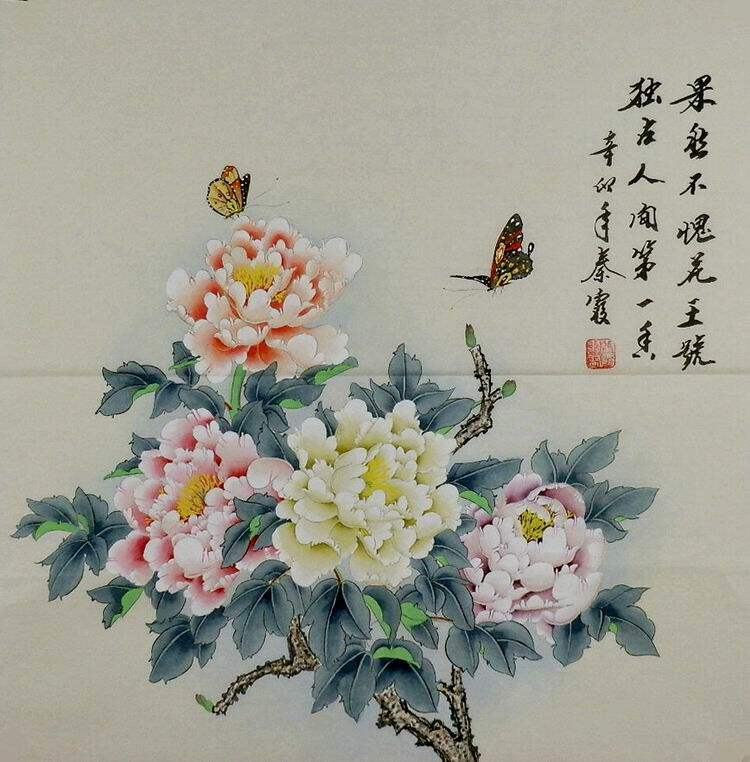 果然不愧花王號
独占人间第一香
辛卯年秦霞